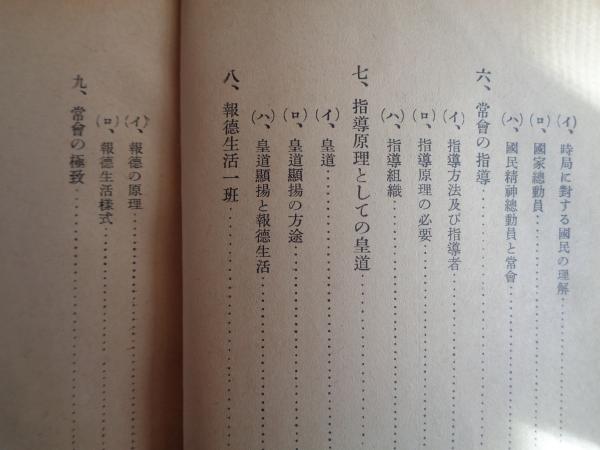 (イ)、時局に對する國民の理解
(ロ)、國家總動員
(ハ)、國民精神總動員と常會
六、常會の指導
(イ)、指導方法及び指導者
(ロ)、指導原理の必要
(ハ)、指導組織
七、指導原理としての皇道
(イ)、皇道
(ロ)、皇道顯揚の方途
(ハ)、皇道顯揚と報德生活
八、報德生活一班
(イ)、報德の原理
(ロ)、報德生活樣式
九、常會の極致